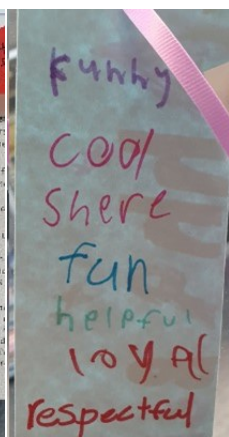 funny
cool
shere
fun
helpful
loyal
respectful